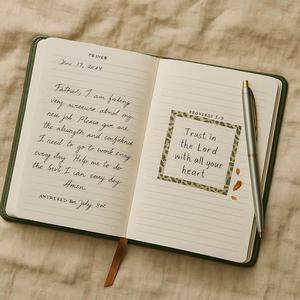 PRAYER
Dec. 17, 2024
Father, I am feeling
very about my
new job. Please give me
the strength and confidence
I need to go to work
every day. Help me to do
the best I can every day.
Amen.
ANSWERED July
PROVERBS 3:5
Trust in
the Lord
with all your
heart